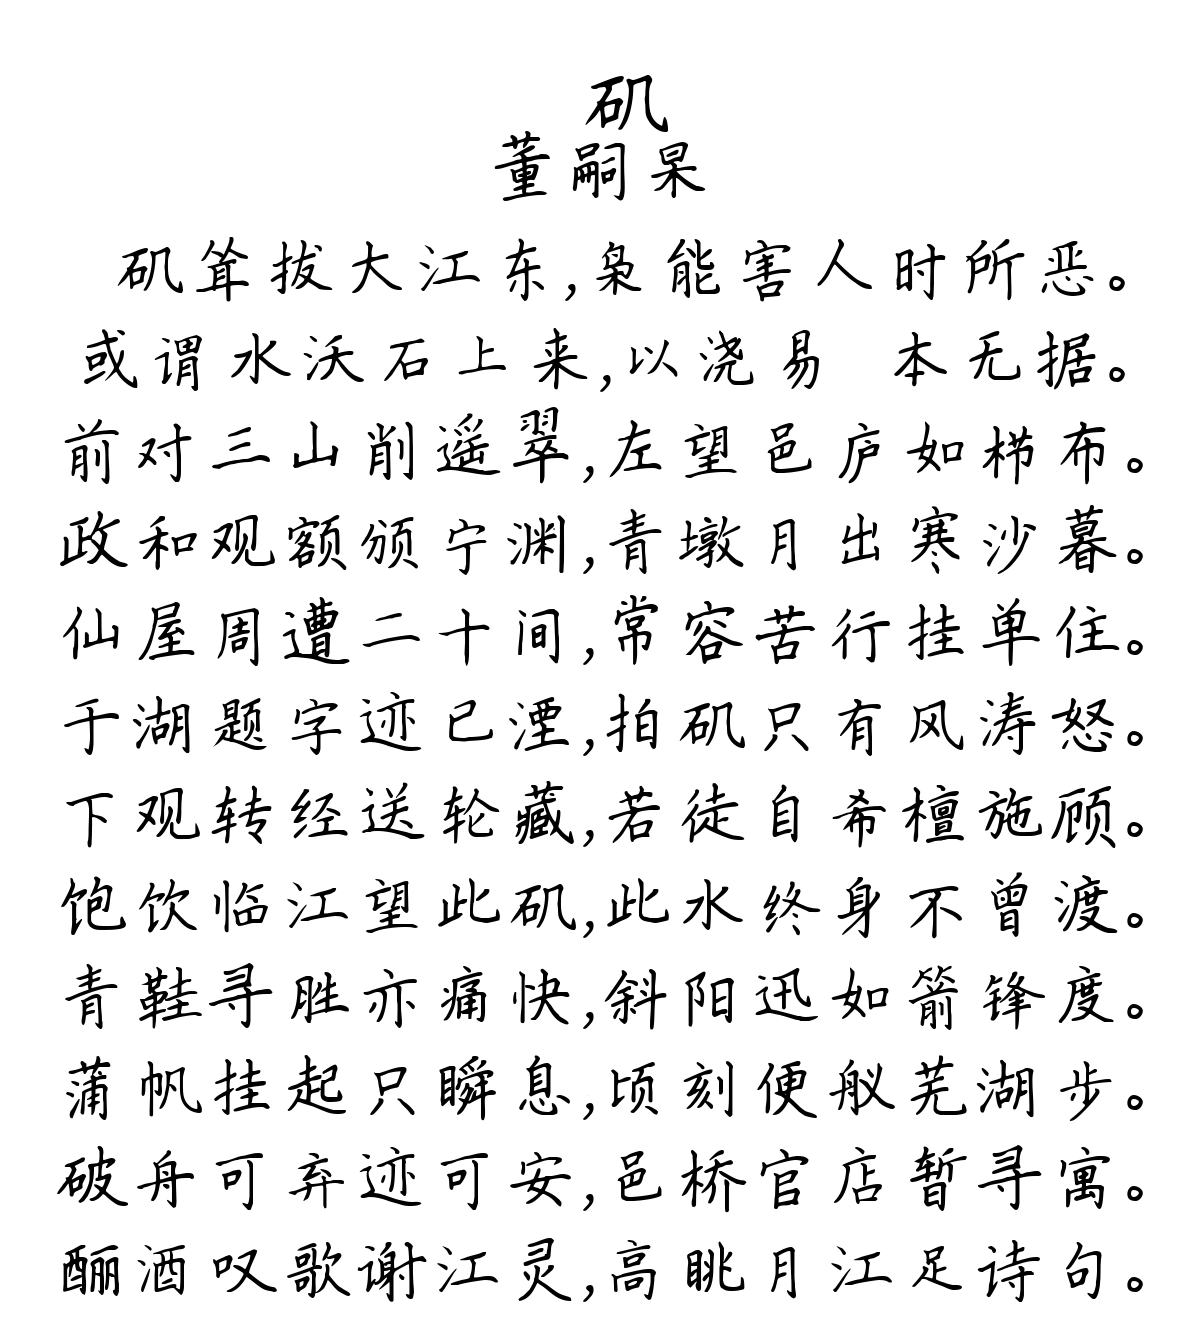 矶
董嗣杲
矶耸拔大江东,枭能害人时所恶。
或谓水沃石上来,以浇易 本无据。
前对三山削遥翠,左望邑庐如栉布。
政和观额颁宁渊,青墩月出寒沙暮。
仙屋周遭二十间,常容苦行挂单住。
于湖题字迹已湮,拍矶只有风涛怒。
下观转经送轮藏,若徒自希檀施顾。
饱饮临江望此矶,此水终身不曾渡。
青鞋寻胜亦痛快,斜阳迅如箭锋度。
蒲帆挂起只瞬息,顷刻便舣芜湖步。
破舟可弃迹可安,邑桥官店暂寻寓。
酾酒叹歌谢江灵,高眺月江足诗句。